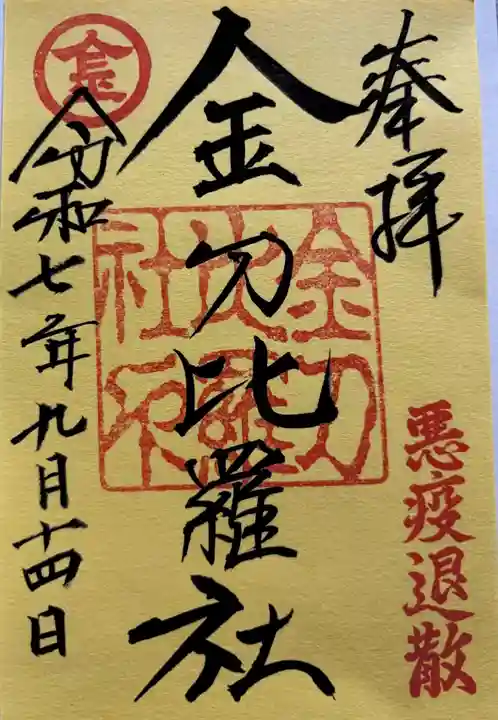 奉拝
悪疫退散
金刀比羅社
金刀比羅社印
令和七年九月十四日